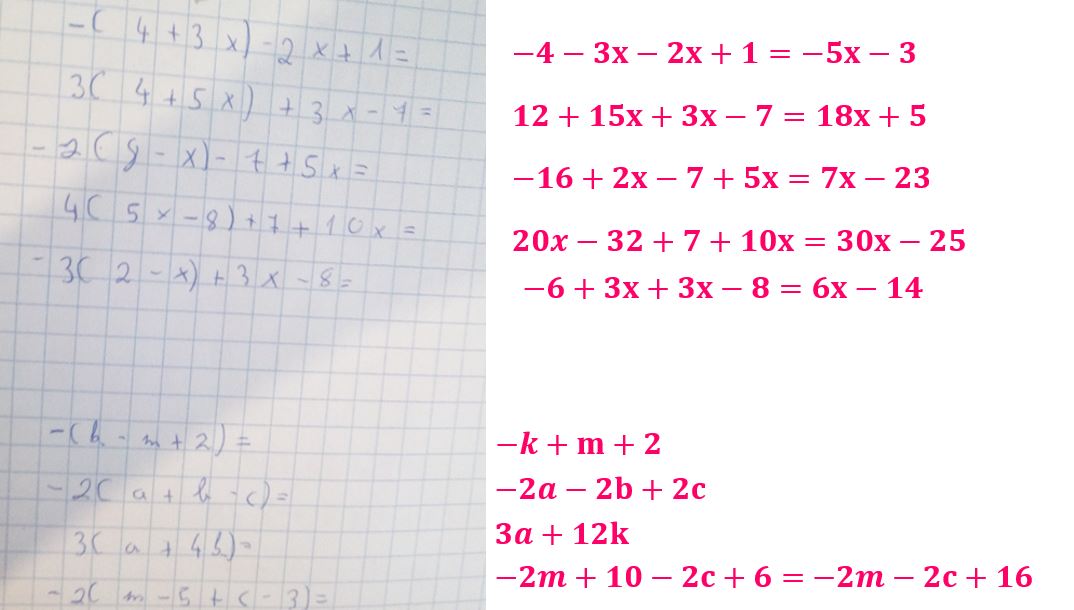 -( 4 + 3 x) - 2 x + 1 =
3( 4 + 5 x) + 3 x - 7 =
- 2( 8 - x) - 7 + 5 x =
4( 5 x - 8) + 7 + 10 x =
- 3( 2 - x) + 3 x - 8 =
-(k - m + 2) =
- 2( a + b - c) =
3( a + 4k) =
- 2( m - 5 + c - 3) =
−4 − 3x − 2x + 1 = −5x − 3
12 + 15x + 3x − 7 = 18x + 5
−16 + 2x − 7 + 5x = 7x − 23
20x − 32 + 7 + 10x = 30x − 25
−6 + 3x + 3x − 8 = 6x − 14
−k + m + 2
−2a − 2b + 2c
3a + 12k
−2m + 10 − 2c + 6 = −2m − 2c + 16